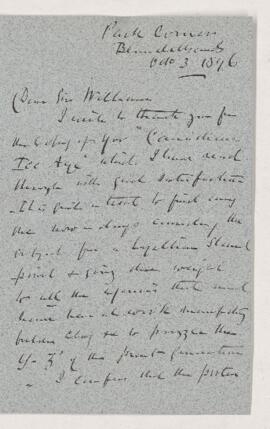 Park Corner
Blundellsands
Oct 3 1896
(Dear Sir William
I write to thank you for
the Copy of your "Canadian
Ice Age" which I have read
through with great satisfaction
It is quite a treat to find any
one now a days considering the
subject from a Lyellian Stand
point & giving due weight
to all the agencies that must
have been at work
boulder clay &c to puzzle the
of the present generation
I confess that the